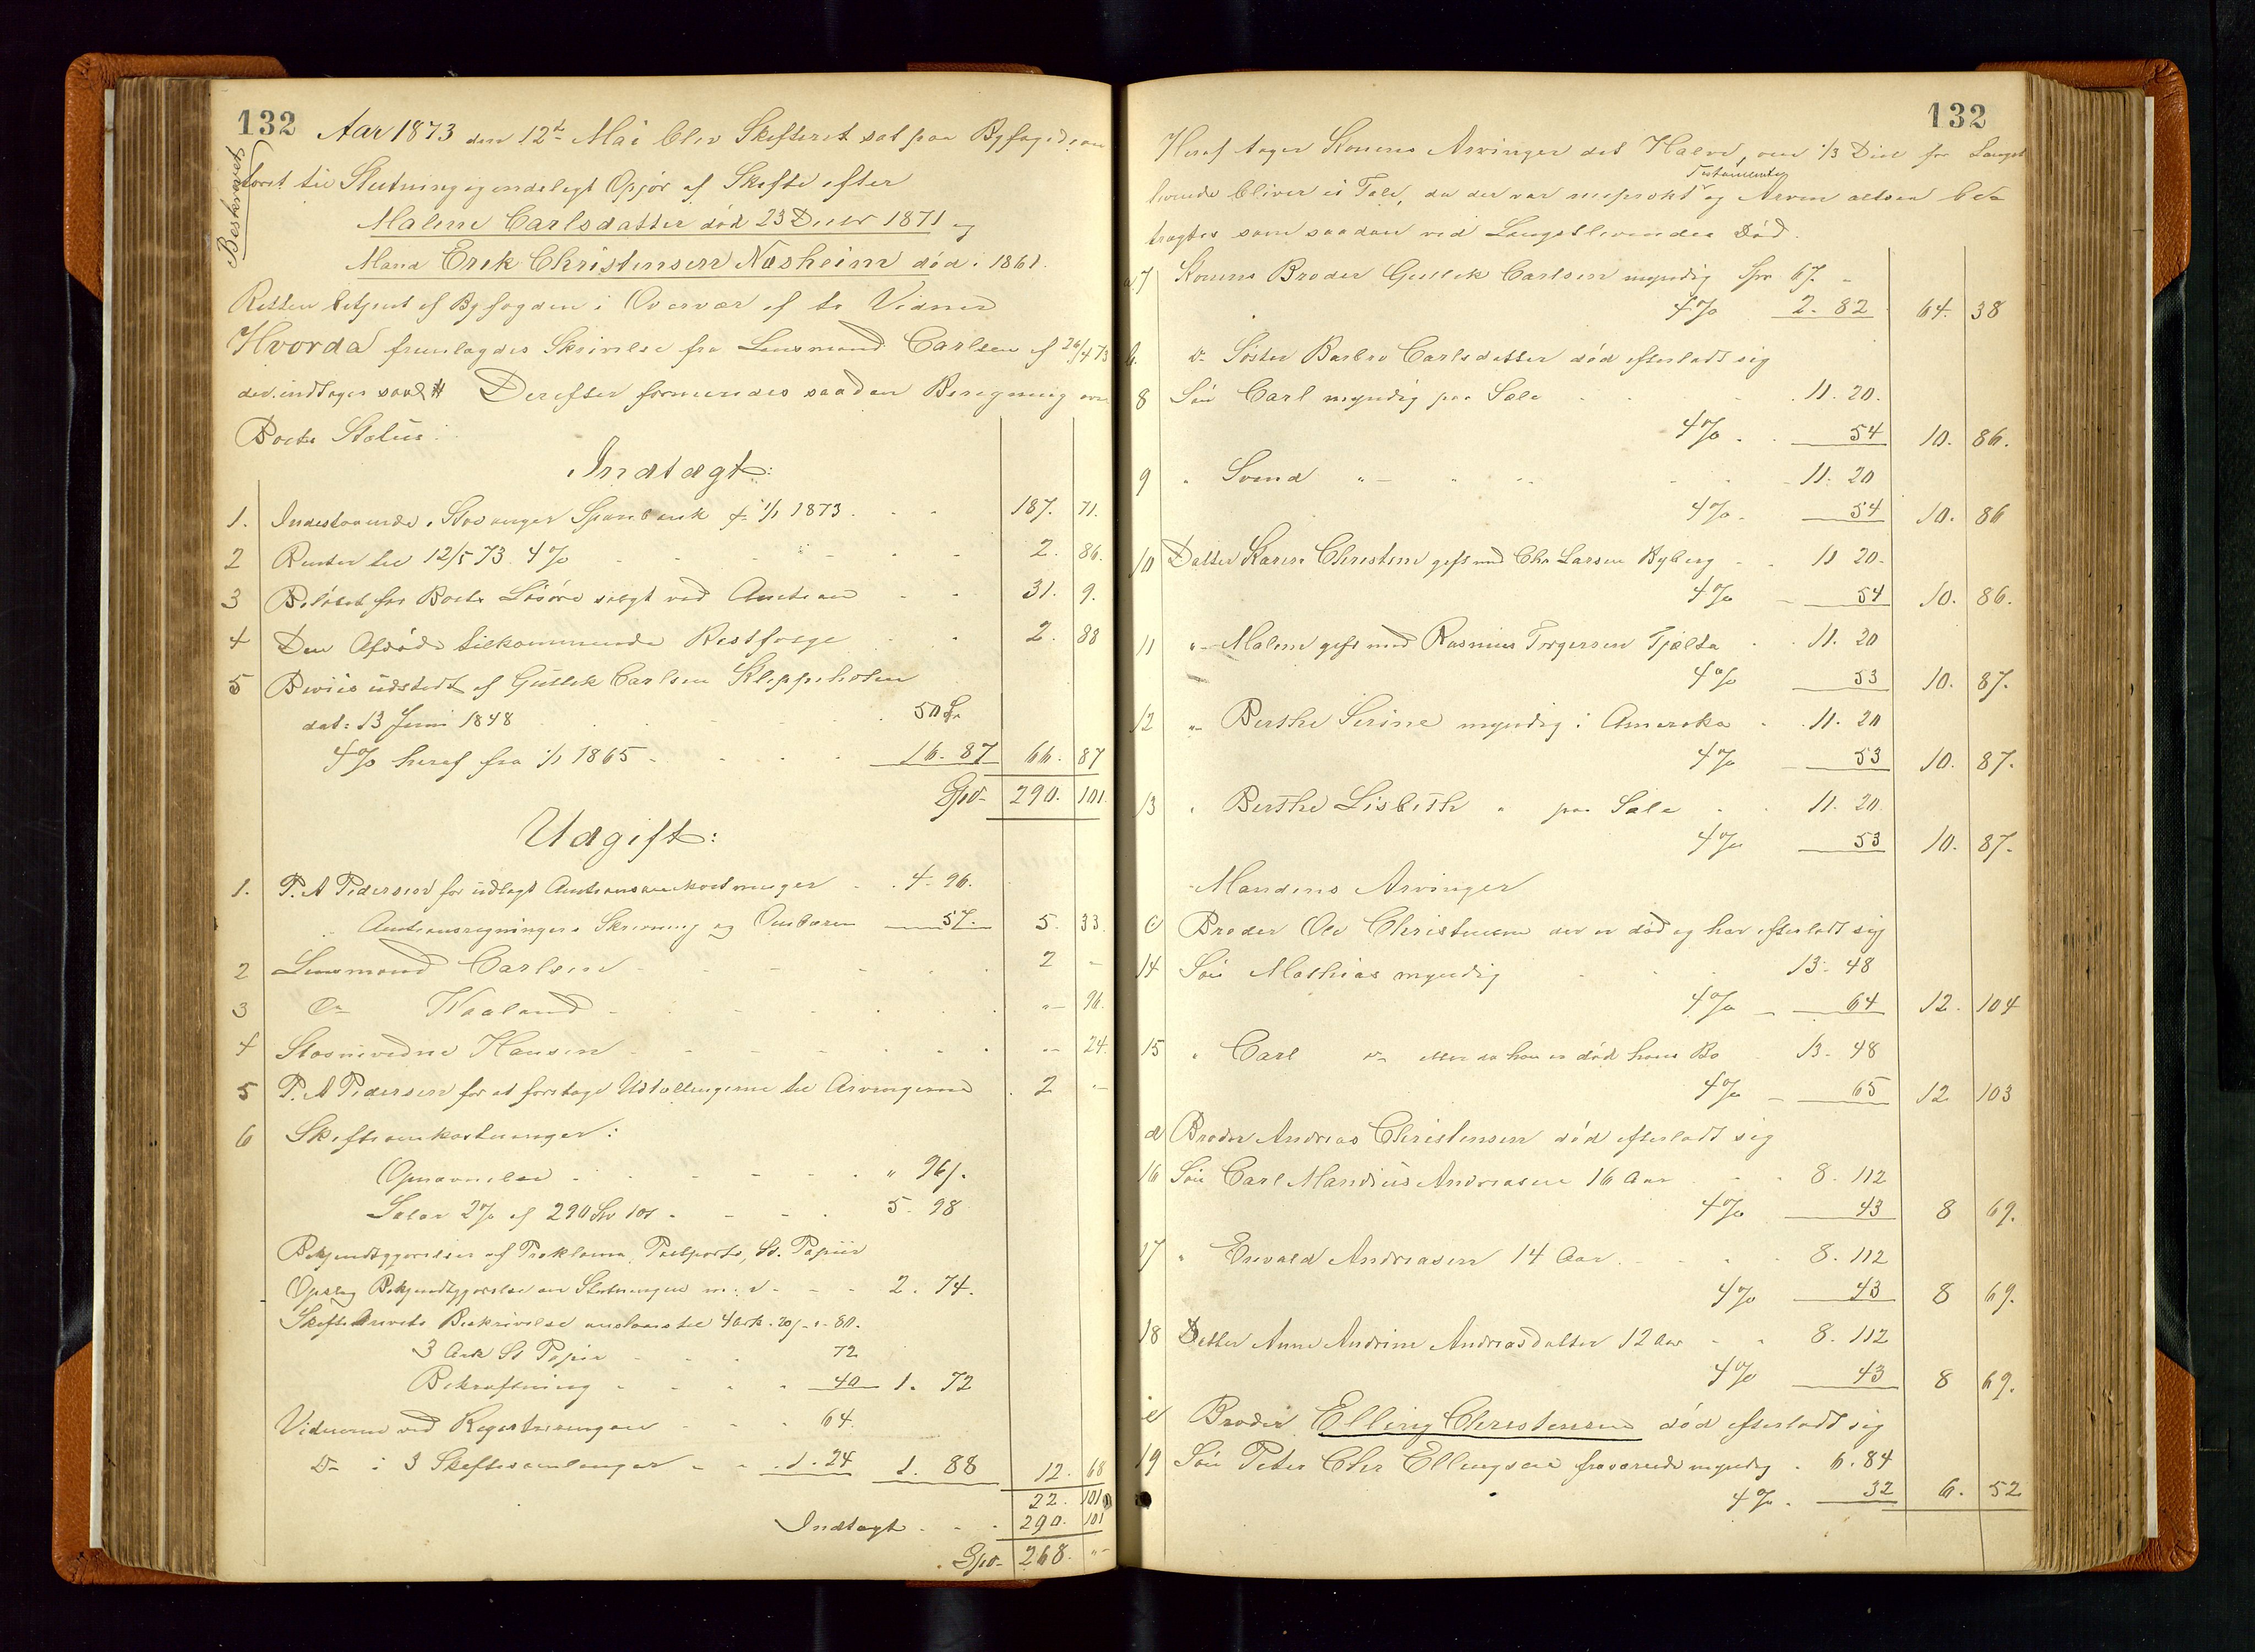 132
Aar 1873 den 12te Mai blev Skifteret sat paa Byfogedcon
toret til Slutning og endeligt Opjør af Skifte efter
Beskrevet
Malene Carlsdatter død 23 Decbr 1871 og
Mand Erik Christensen Næsheim død i 1861.
Retten betjent af Byfogden i Overvær af to Vidner
Hvorda fremlagdes Skrivelse fra Lensmand Carlsen af 26/4 73
der indtages saal. # Derefter formeredes saadan Beregning over
Boets Status:
Indtægt:
1. Indestaaende i Stavanger Sparebank pr 1/1 1873 . . . 187. 71.
2 Renter til 12/5 73 4% - - - - - 2. 86.
3 Beløbet for Boets Løsøre solgt ved Auction - - 31. 9.
4 Den Afdøde tilkommende Restfolge . . 2. 88
5 Beviis udstedt af Gullik Carlsen Kleppeholen
dat: 13 Juni 1848 . . . . . 50 Sp
4% heraf fra 1/1 1865 - . . . . 16. 87 66. 87
Spd - 290. 101.
Udgift:
1. P. A Pedersen for udlagt Auctionsomkostninger . . 4. 96.
" Auctionsregningers Skrivning og Ombæren 57. 5. 33.
2 Lensmand Carlsen - - - - - . 2 -
3 Do Waaland - . - - . . . "- 96.
4 Stevnevidne Hansen - - - - . . . "- 24.
5 P. A Pedersen for at foretage Udtællingerne til Arvingerne . 2 "-
6 Skifteomkostninger:
Opnævnelse . . - - - . . " 96 s.
Salar 2% af 290 Sp 101 - - - . 5. 98
Bekjendtgjørelser af Proklama, Postporto, St. Papiir
Opslag Bekjendtgjørelse om Slutningen m: v - - - 2. 74.
Skiftebrevets Beskrivelse anslaaes til 4 Ark . 20 s - " - 80.
3 Ark St Papir - - - 72
Bekræftning - - - . 40 1. 72
Vidnerne ved Registreringen - - . 64.
Do i 3 Skiftesamlinger - - . 1. 24 1. 88 12. 68
22. 101
Indtægt . - . 290. 101
Spd - 268. "-
132
Heraf tager Konens Arvinger det Halve, om 1/3 Deel for Længst
levende bliver ei Tale, da der var oprejst Testamente og Arven altsaa be=
tragtes som saadan ved Længstlevendes Død.
a 7 Konens Broder Gullik Carlsen myndig Spd 67. -
4% 2. 82 64. 38
b. do Søster Barbro Carlsdatter død efterladt sig
8 Søn Carl myndig paa Sole - - - . 11. 20.
4% . . 54 10. 86.
9 " Svend "- " " - - - 11. 20
4% - 54 10. 86
10 Datter Karen Christine gift med Chr Larsen Byberg - . 11 20.
4% - 54 10. 86.
11 "- Malene gift med Rasmus Torgersen Tjelta . . 11. 20
4% 53 10. 87.
12 "- Berthe Serine myndig i Amerika . . 11. 20
4% 53 10. 87.
13 " Berthe Lisbeth " paa Sole - . 11. 20.
4% 53 10. 87.
Mandens Arvinger
c Broder Ole Christensen der er død og har efterladt sig
14 Søn Mathias myndig . . . 13. 48
4% - 64 12. 104
15 " Carl do eller da han er død hans Bo . 13. 48
4% - 65 12 103
d Broder Andreas Christensen død efterladt sig
16 Søn Carl Mandius Andreasen 16 Aar . - . 8. 112
4% 43 8 69.
17 " Enevald Andreasen 14 Aar . - . . 8. 112
4% 43 8 69.
18 Datter Anne Andrine Andreasdatter 12 Aar - - 8. 112
4% 43 8 69.
e Broder Elling Christensen død efterladt sig
19 Søn Peter Chr Ellingsen fraværende myndig . 6. 84
4% . 32 6. 52